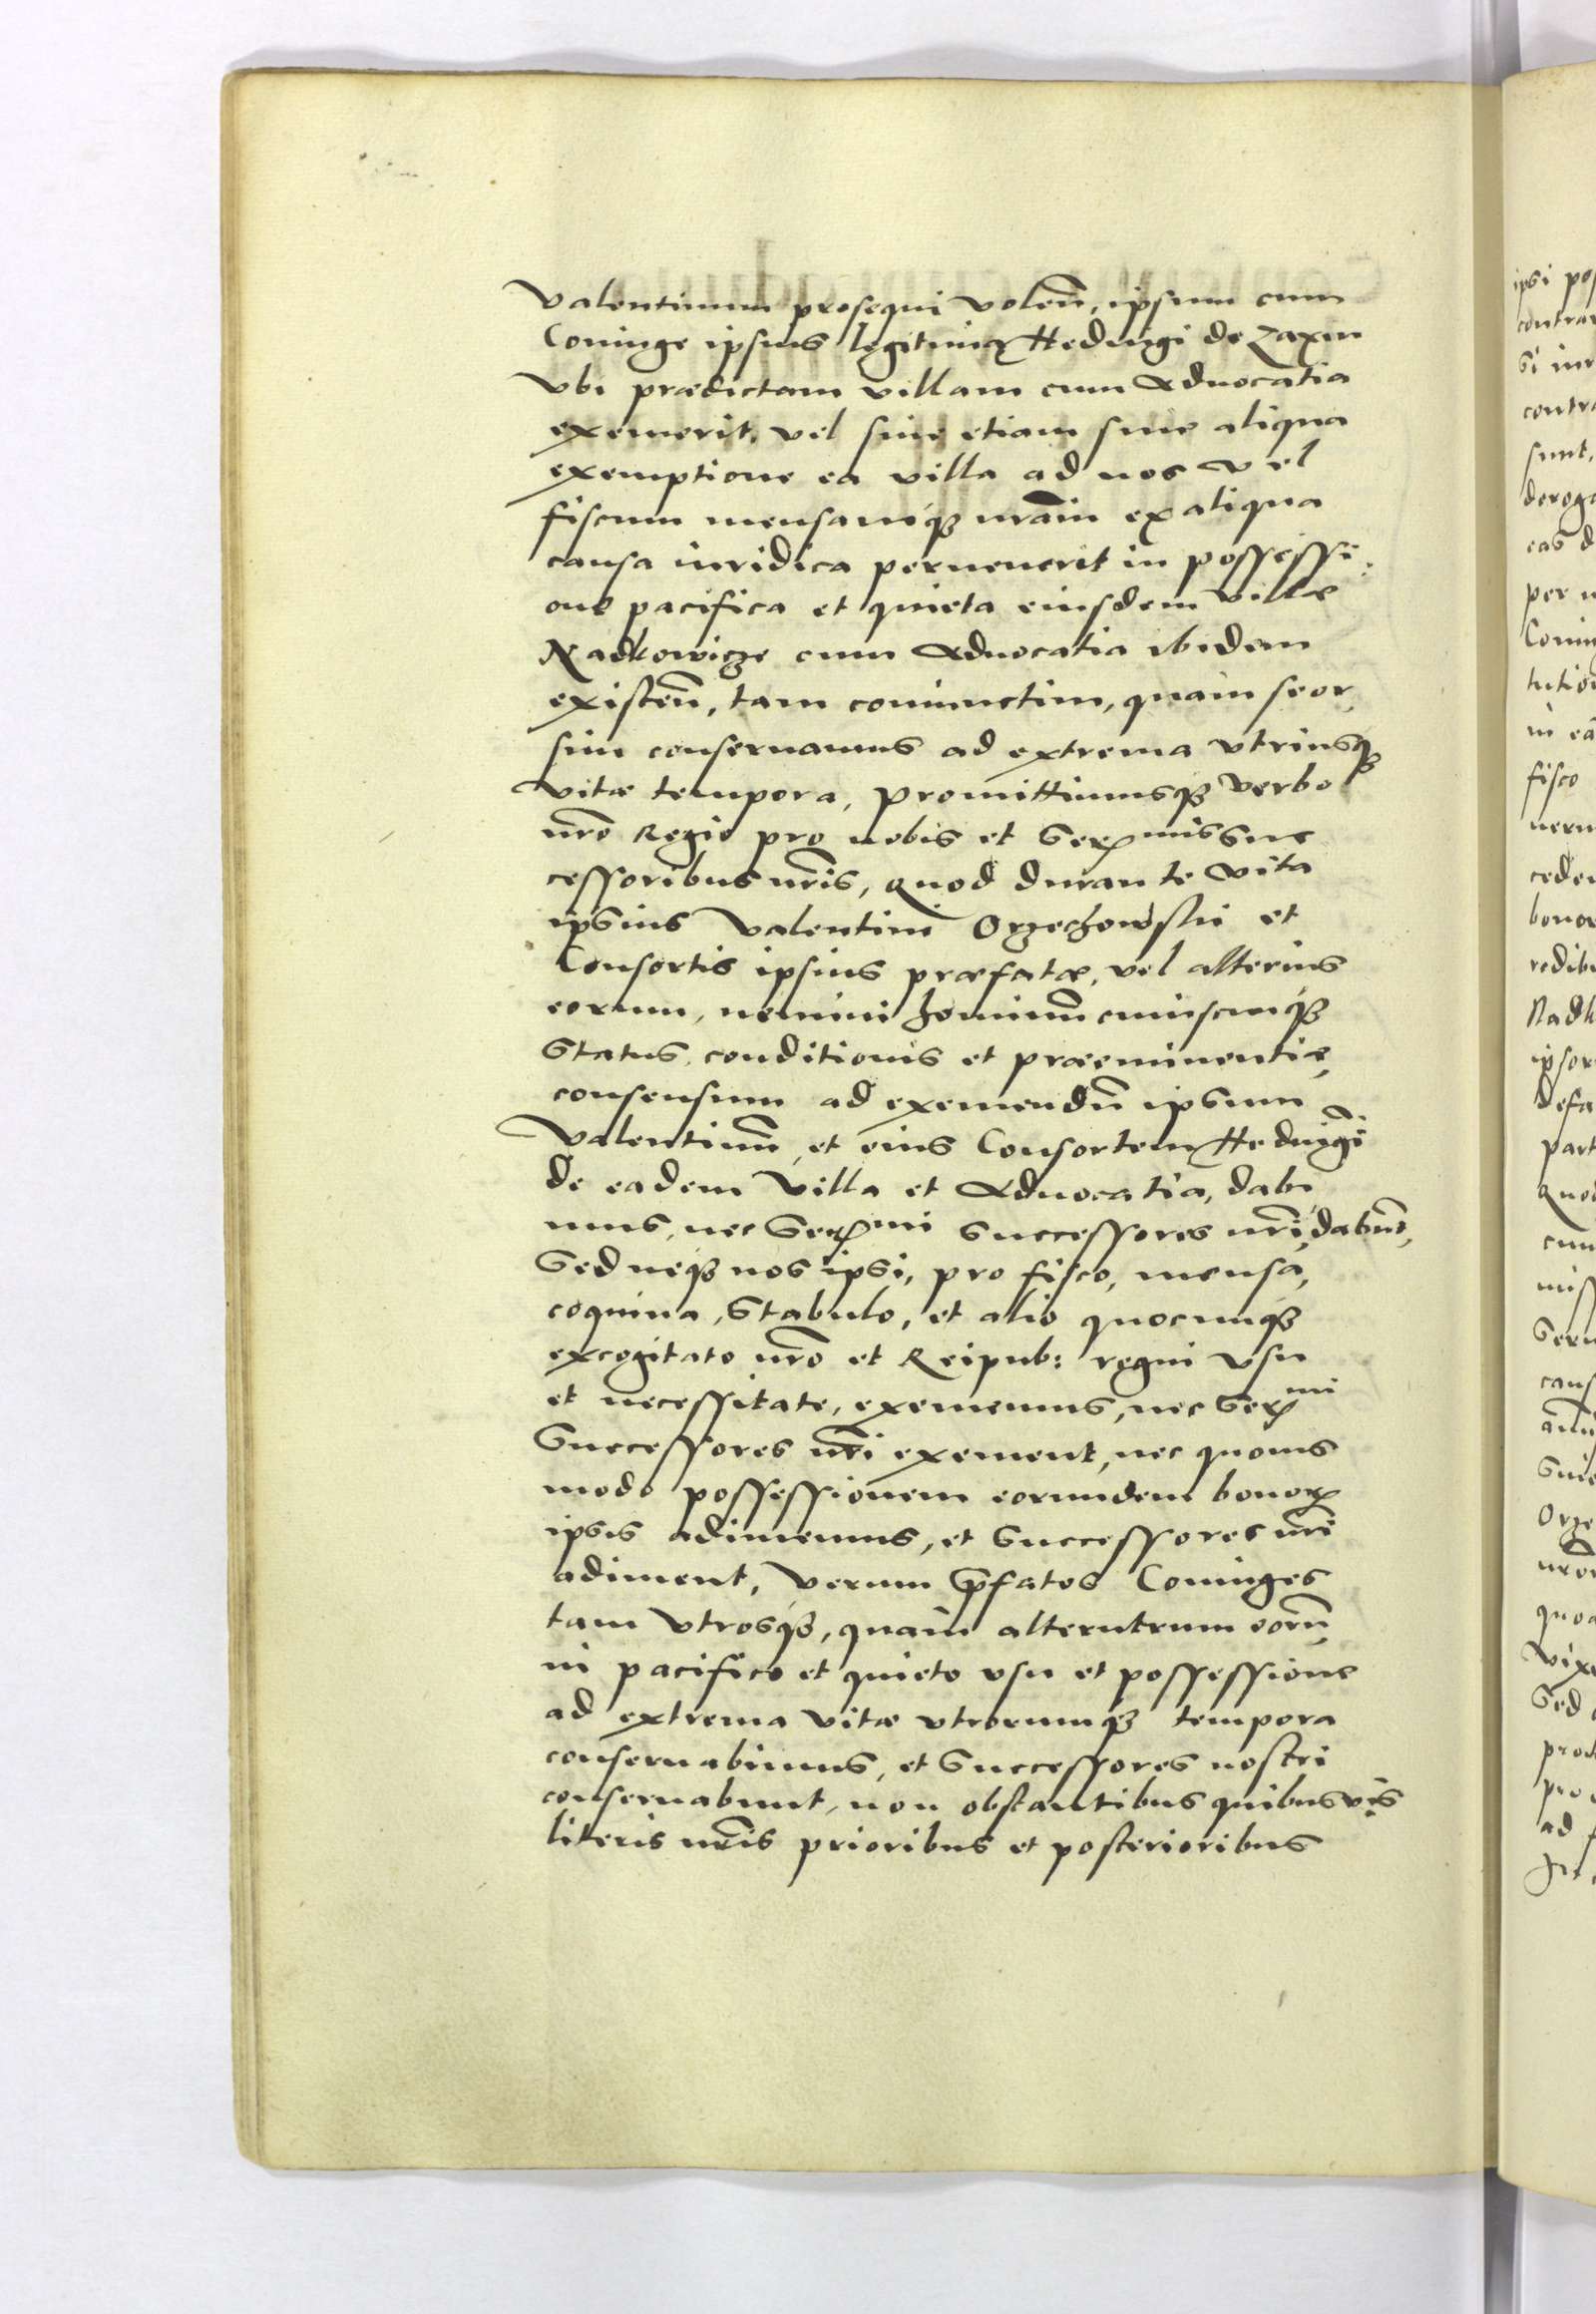 Valentinum prosequi volen̄, ipsum cum
Coniuge ipsius legitima Hedvigi de Zaxin
Vbi prædictam villam cum Aduocatia
exemerit, vel siue etiam sine aliqua
exemptione ea villa ad nos vel
fiscum mensamq; nr̄am ex aliqua
causa iuridica peruenerit in possessi:
one pacifica et quieta eiusdem villæ
Radkowicze cum Aduocatia ibidem
existen̄, tam coniunctim, quam seor,
sim conseruamus ad extrema vtriusq;
vitæ tempora, promittimusq; verbo
nr̄o Regio pro nobis et Ser:mis Suc
cessoribus nr̄is, quod durante vita
ipsius Valentini Orzechowskii et
Consortis ipsius præfatæ, vel alterius
eorum, nemini hominum̄ cuiuscunq;
Status, conditionis et præeminentiæ,
consensum ad exemendn̄ ipsum
Valentinum̄, et eius Consortem Heduigi
de eadem Villa et Aduocatia, dabi,
mus, nec Ser:mi Successores nr̄i, dabun̄t,
Sed neq; nos ipsi, pro fisco, mensa,
coquina, Stabulo, et alio quocunq;
excogitato nr̄o et Reipub: regni vsu
et necessitate, exememus, nec Ser:mi
Successores nr̄i exement, nec quouis
modo possessionem eorundem bonor:
ipsis adimemus, et Successores nr̄i
adiment, verum p̄fatos Coniuges
tam vtrosq;, quam alterutrum eorū,
in pacifico et quieto vsu et possessione
ad extrema vitæ vtrorumq; tempora
conseruabimus, et Successores nostri
conseruabunt, non obstantibus quibusvis
literis nr̄is prioribus et posterioribus